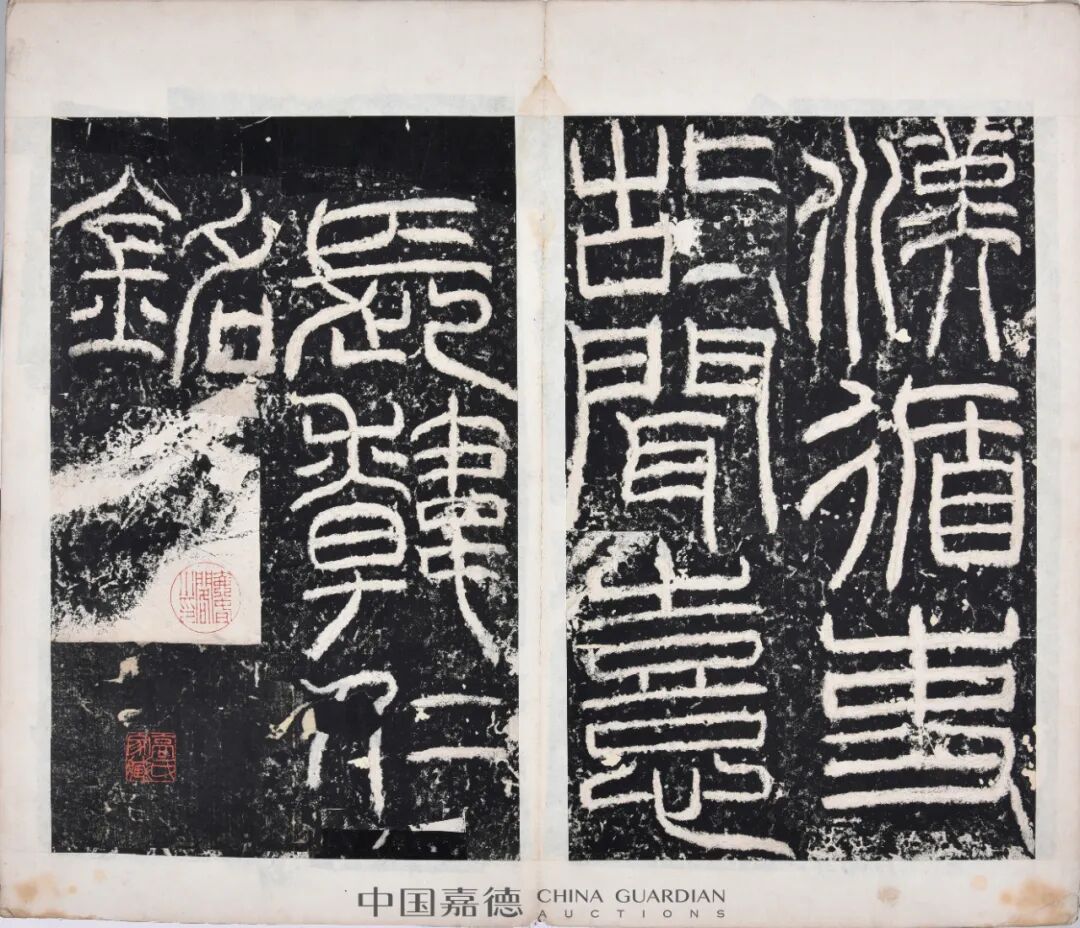 漢循吏
故聞憙
長韓仁
銘
高氏家藏
中国嘉德 CHINA GUARDIAN
AUCTIONS